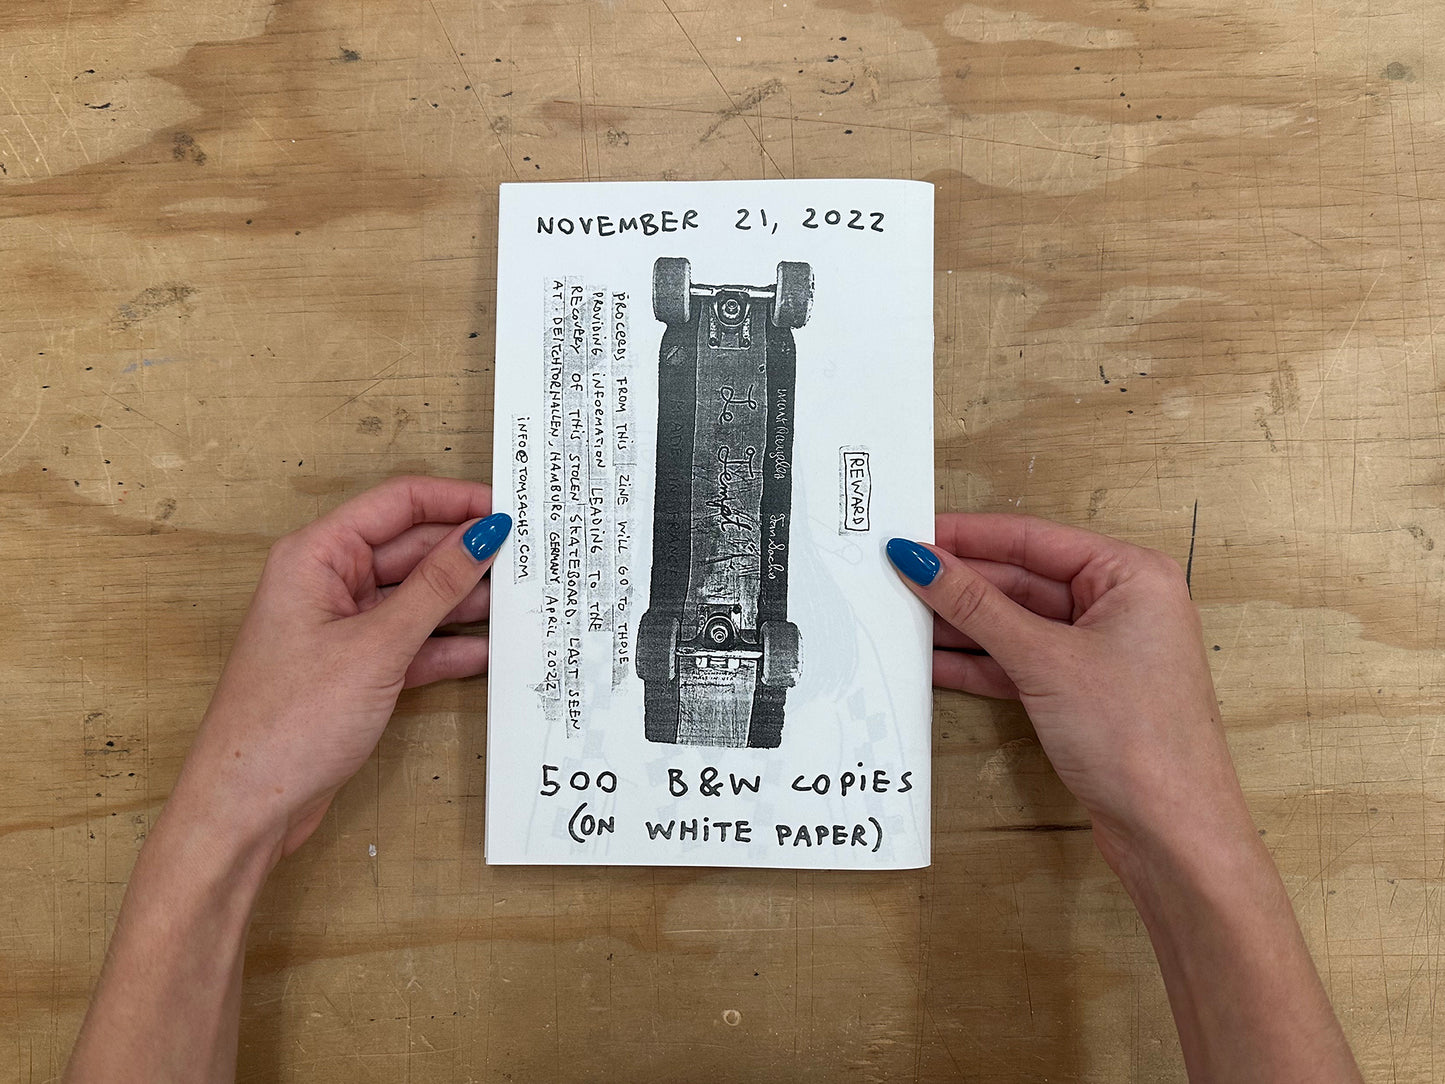 NOVEMBER 21, 2022
PROCEEDS FROM THIS ZINE WILL GO TO THOSE
PROVIDING INFORMATION LEADING TO THE
RECOVERY OF THIS STOLEN SKATEBOARD. LAST SEEN
AT: DEITCHTORHALLEN, HAMBURG GERMANY, APRIL 2022
INFO@TOMSACHS.COM
MADE IN FRANCE
Le Tempt
Tom Sachs
MADE IN USA
REWARD
500 B&W COPIES
(ON WHITE PAPER)